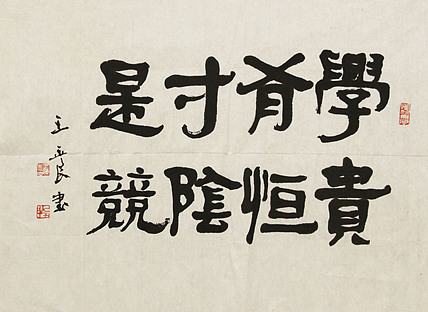 學貴
有恒
寸陰
是競
王良書